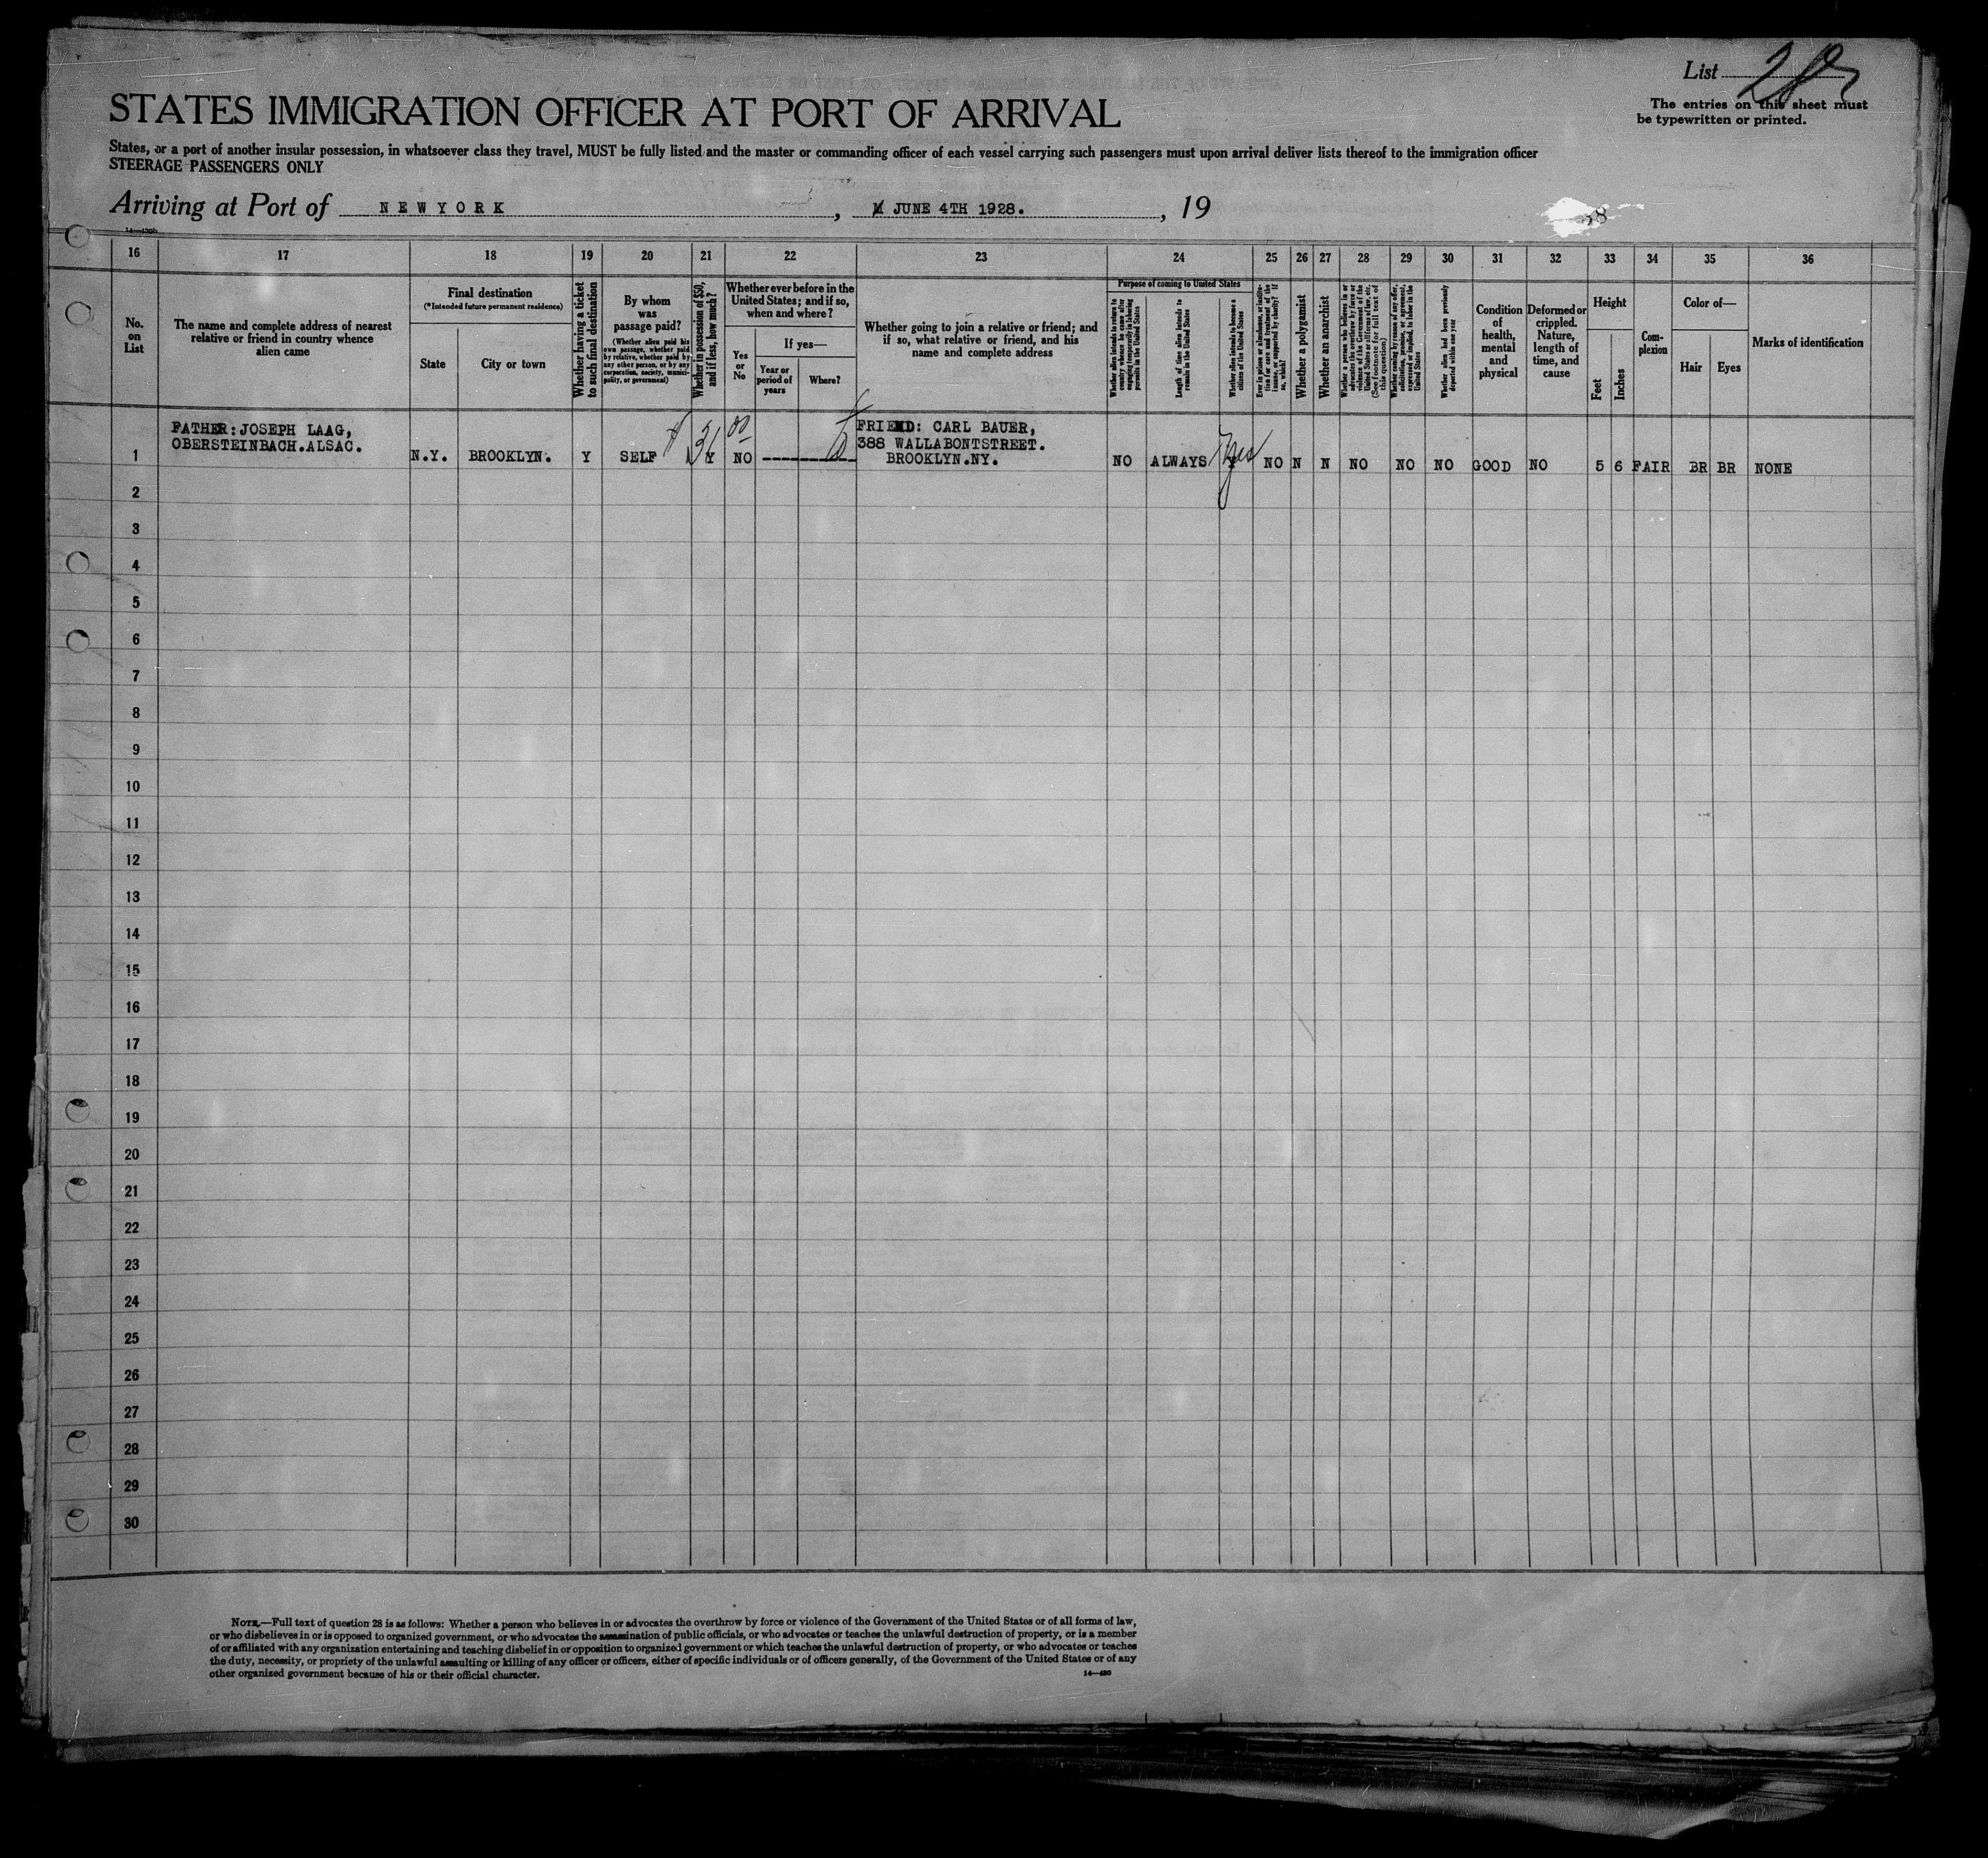 List
The entries on this sheet must
be typewritten or printed.
STATES IMMIGRATION OFFICER AT PORT OF ARRIVAL
States, or a port of another insular possession, in whatsoever class they travel, MUST be fully listed and the master or commanding officer of each vessel carrying such passengers must upon arrival deliver lists thereof to the immigration officer
STEERAGE PASSENGERS ONLY
Arriving at Port of NEWYORK , JUNE 4TH 1928. , 19
16 17 18 19 20 21 22 23 24 25 26 27 28 29 30 31 32 33 34 35 36
No.
on
List
The name and complete address of nearest
relative or friend in country whence
alien came
Final destination
(*Intended future permanent residence)
State
City or town
Whether having a ticket
to such final destination
By whom
was
passage paid?
(Whether alien paid his
own passage, whether paid
by relative, whether paid by
any other person, or by any
corporation, society, munici-
pality, or government)
Whether in possession of $50,
and if less, how much?
Whether ever before in the
United States; and if so,
when and where?
Yes
or
No
If yes—
Year or
period of
years
Where?
Whether going to join a relative or friend; and
if so, what relative or friend, and his
name and complete address
Purpose of coming to United States
Whether alien intends to return to
country whence he came after
engaging temporarily in laboring
pursuits in the United States
Length of time alien intends to
remain in the United States
Whether alien intends to become a
citizen of the United States
Ever in prison or almshouse, or institu-
tion for care and treatment of the
insane, or supported by charity? If
so, which?
Whether a polygamist
Whether an anarchist
Whether a person who believes in or
advocates the overthrow by force or
violence of the Government of the
United States or all forms of law, etc.
(See footnote for full text of
this question)
Whether coming by reason of any offer,
solicitation, promise, or agreement,
expressed or implied, to labor in the
United States
Whether alien had been previously
deported within one year
Condition
of
health,
mental
and
physical
Deformed or
crippled.
Nature,
length of
time, and
cause
Height
Feet
Inches
Com-
plexion
Color of—
Hair
Eyes
Marks of identification
FATHER: JOSEPH LAAG,
OBERSTEINBACH.ALSAC.
FRIEND: CARL BAUER,
388 WALLABONTSTREET.
BROOKLYN.NY.
1 N.Y. BROOKLYN. Y SELF 31 00 Y NO NO ALWAYS Yes NO N N NO NO NO GOOD NO 5 6 FAIR BR BR NONE
2
3
4
5
6
7
8
9
10
11
12
13
14
15
16
17
18
19
20
21
22
23
24
25
26
27
28
29
30
NOTE.—Full text of question 28 is as follows: Whether a person who believes in or advocates the overthrow by force or violence of the Government of the United States or of all forms of law,
or who disbelieves in or is opposed to organized government, or who advocates the assassination of public officials, or who advocates or teaches the unlawful destruction of property, or is a member
of or affiliated with any organization entertaining and teaching disbelief in or opposition to organized government or which teaches the unlawful destruction of property, or who advocates or teaches
the duty, necessity, or propriety of the unlawful assaulting or killing of any officer or officers, either of specific individuals or of officers generally, of the Government of the United States or of any
other organized government because of his or their official character.